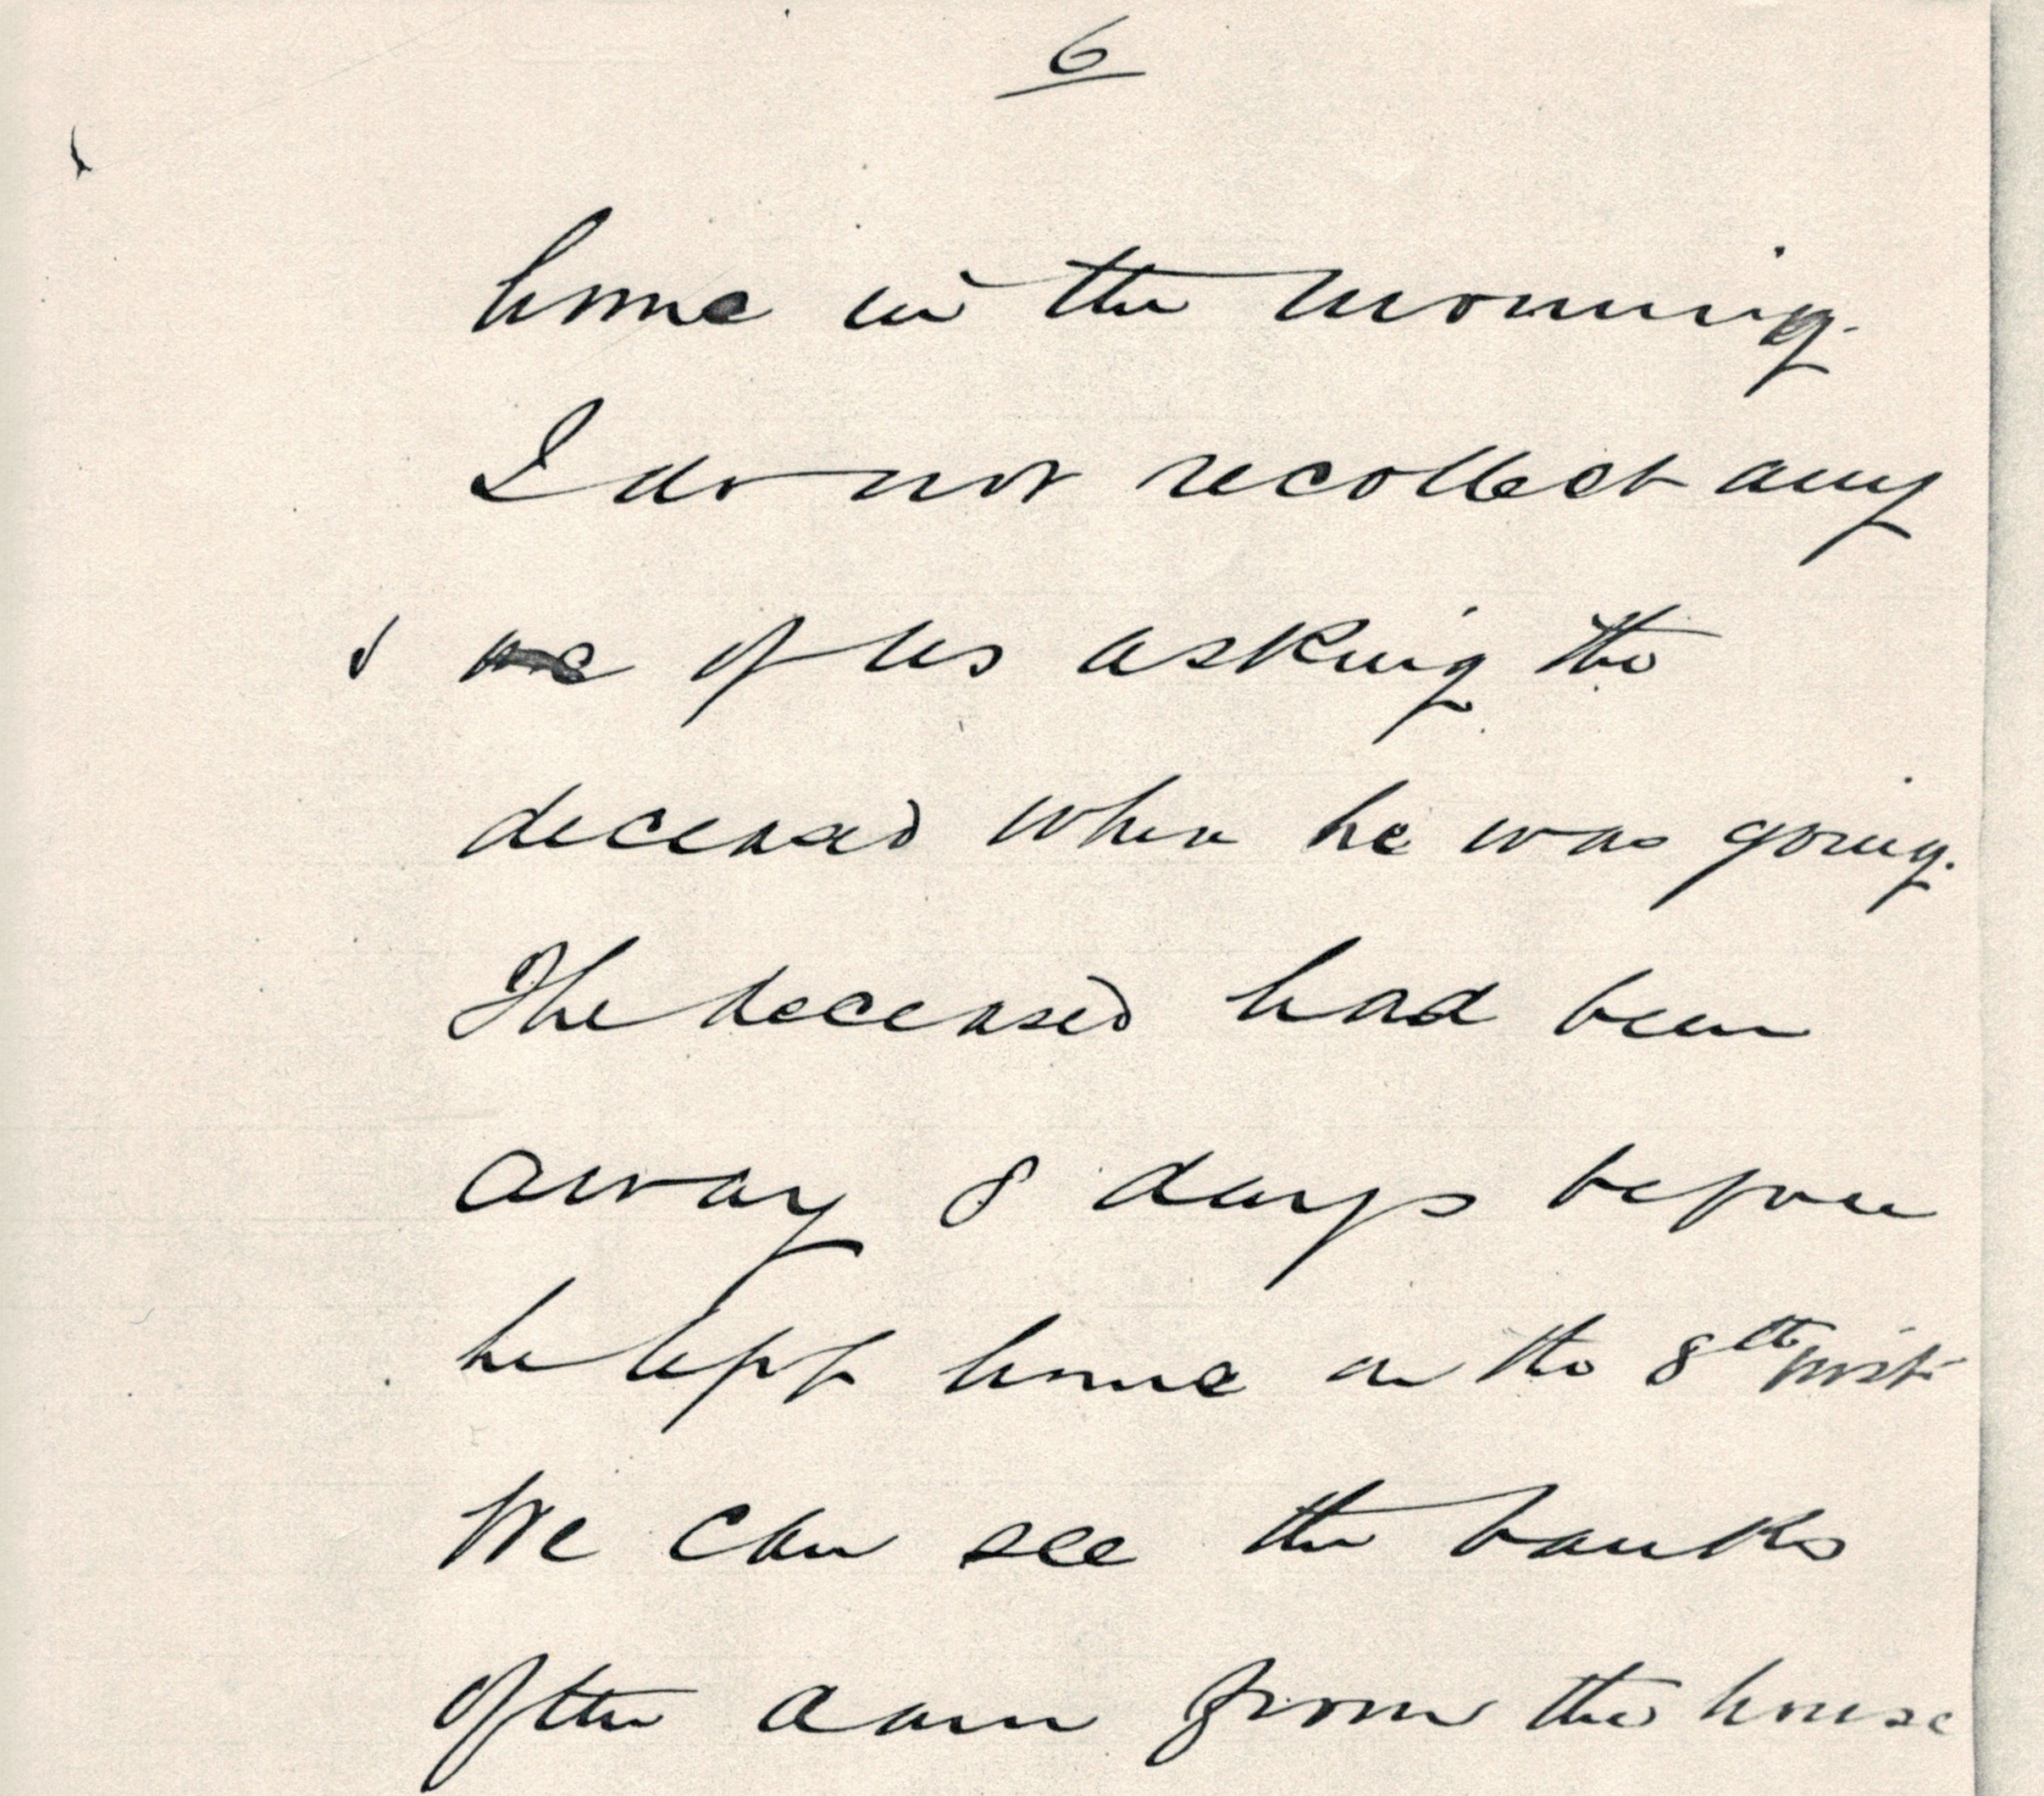 6
home in the morning.
I do not recollect any
one of us asking the
deceased when he was going.
The deceased had been
away 8 days before
he left home on the 8th inst
We can see the banks
of the dam from the house